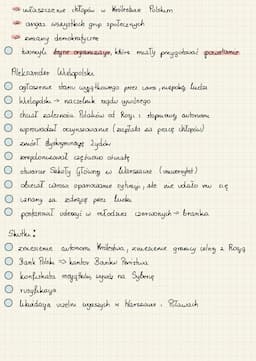 uwłaszczenie chłopów w Królestwie Polskim
awans wszystkich grup społecznych
zmiany demokratyczne
tworzyli tajne organizacje, które miały przygotować powstanie
Aleksander Wielopolski
ogłoszenie stanu wyjątkowego przez cara, niepokój ludzi
Wielopolski → naczelnik rządu cywilnego
chciał zależności Polaków od Rosji i stopniowej autonomii
wprowadził oczynszowanie (zapłata za pracę chłopów)
zniósł dyskryminację Żydów
spolonizował częściowo oświatę
otwarcie Szkoły Głównej w Warszawie (uniwersytet)
obiecał carowi opanowanie sytuacji, ale nie udało mu się
uznany za zdrajcę przez ludzi
postanowił uderzyć w młodzież czerwonych → branka
Skutki:
zniesienie autonomii Królestwa, zniesienie granicy celnej z Rosją
Bank Polski → kantor Banku Państwa
konfiskata majątków, wywózki na Syberię
rusyfikacja
likwidacja uczelni wyższych w Warszawie i Puławach